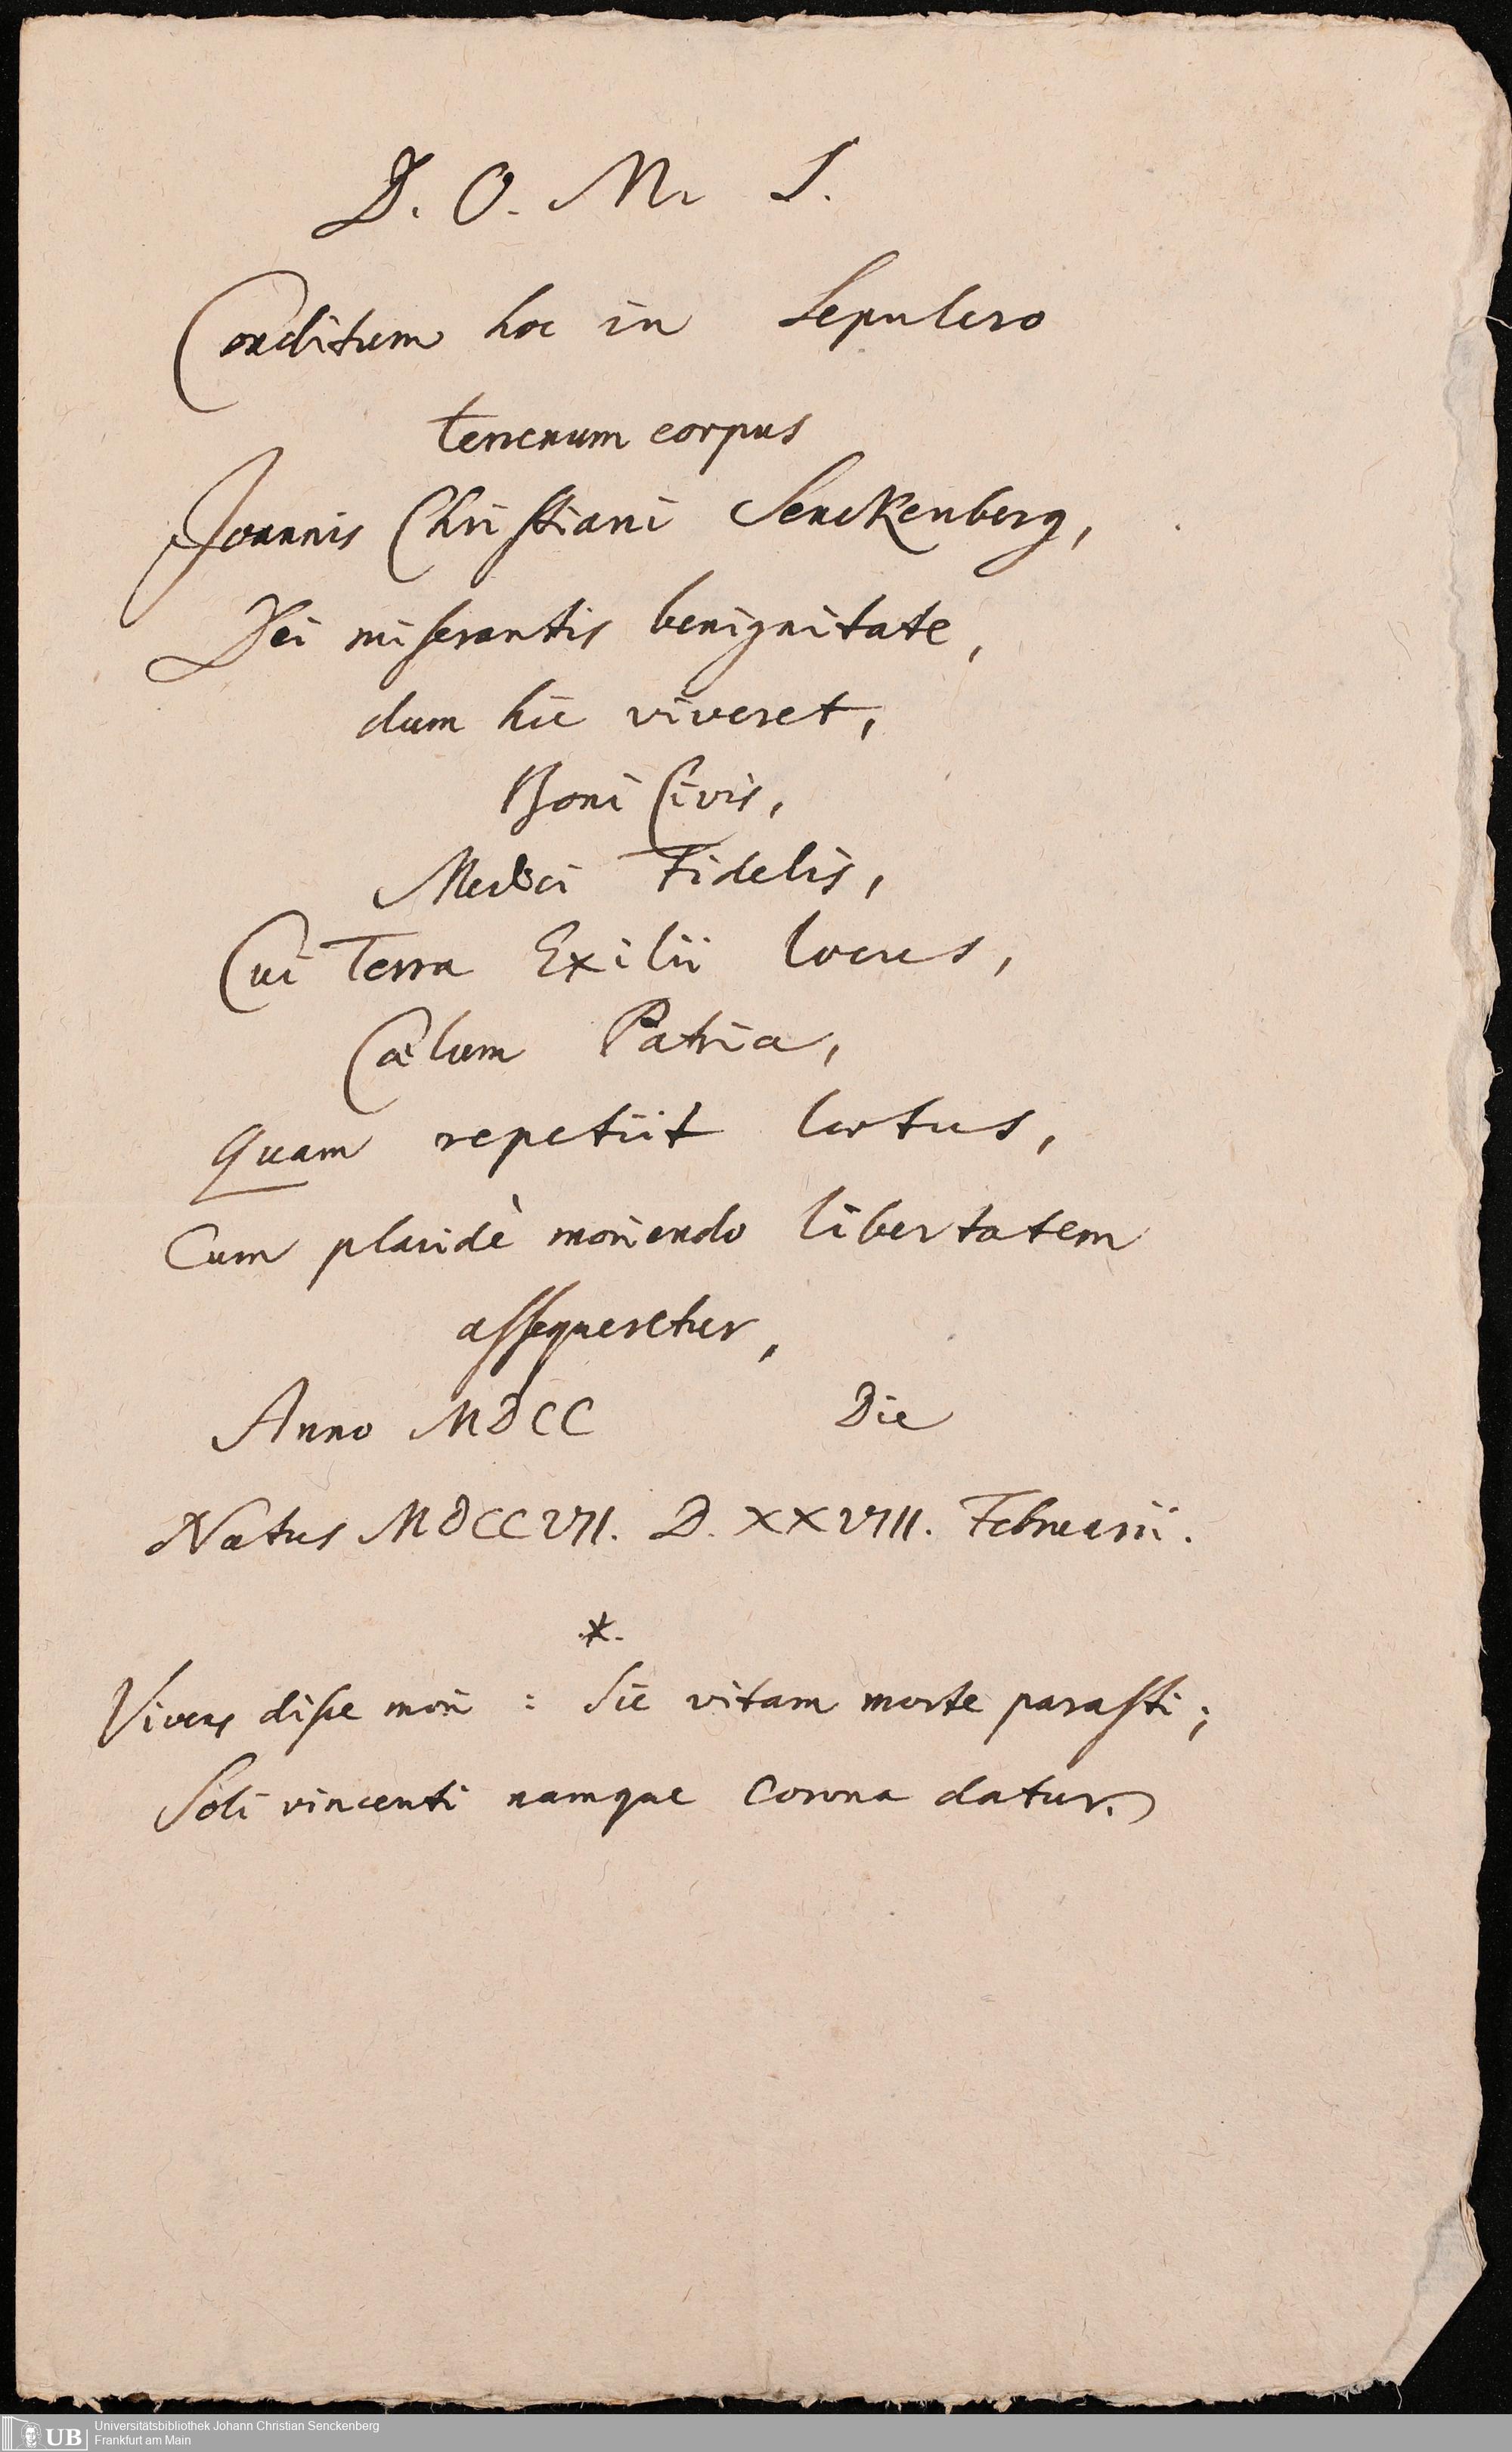 D. O. M. S.
Conditum hoc in Sepulcro
terrenum corpus
Joannis Christiani Senckenberg,
Dei miserantis benignitate,
dum hic viveret,
Boni Civis,
Medici Fidelis,
Cui Terra Exilii locus,
Cœlum Patria,
Quam repetiit lætus,
Cum placidè moriendo libertatem
assequeretur,
Anno MDCC Die
Natus MDCCVII. D. XXVIII. Februarii.
*
Vivens disce mori : Sic vitam morte parasti;
Soli vincenti namque Corona datur.
UB Universitätsbibliothek Johann Christian Senckenberg
Frankfurt am Main